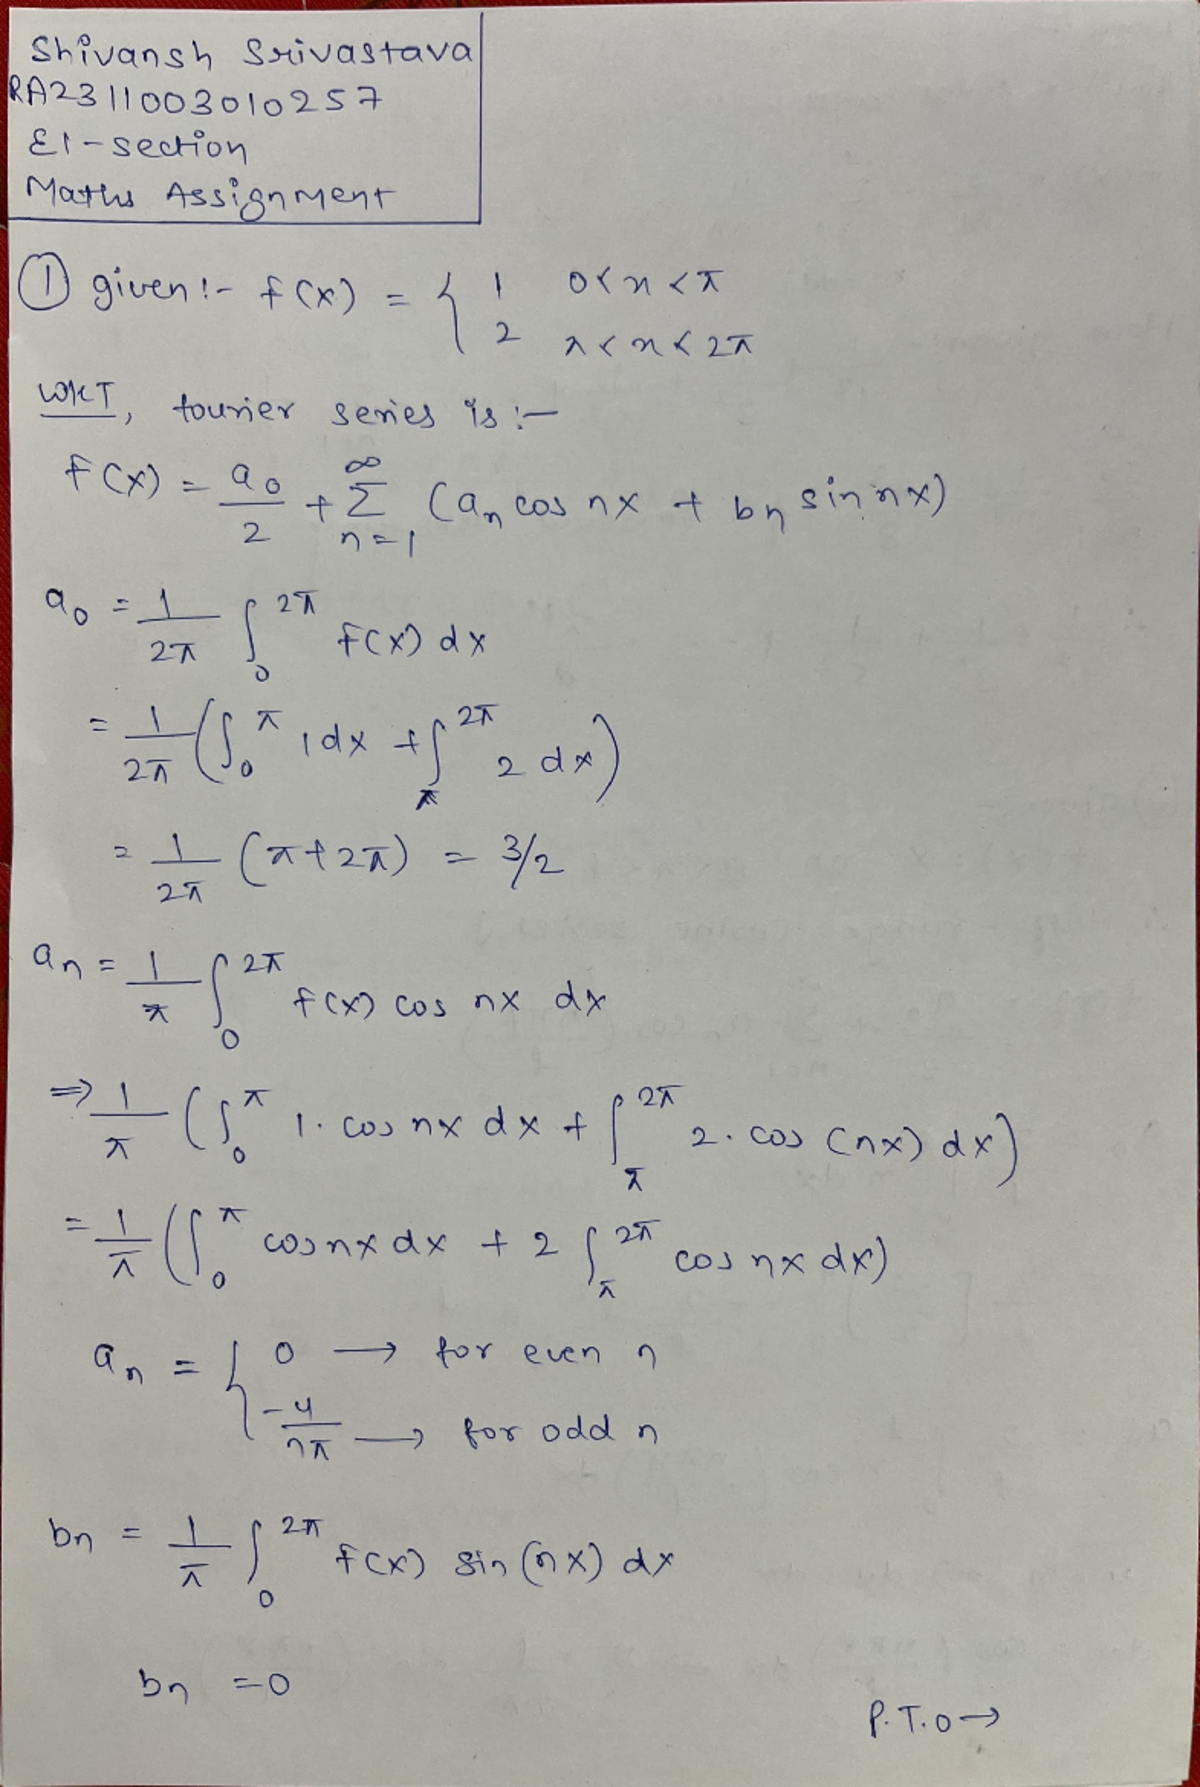 Shivansh Srivastava
RA2311003010257
E1-section
Maths Assignment
① given:- f(x) = { 1 0<x<π
2 π<x<2π
WKT, fourier series is:-
f(x) = a₀/2 + Σ_{n=1}^{∞} (aₙ cos nx + bₙ sin nx)
a₀ = 1/2π ∫₀^{2π} f(x) dx
= 1/2π (∫₀^{π} 1dx + ∫_{π}^{2π} 2 dx)
= 1/2π (π+2π) = 3/2
aₙ = 1/π ∫₀^{2π} f(x) cos nx dx
⇒ 1/π (∫₀^{π} 1. cos nx dx + ∫_{π}^{2π} 2. cos (nx) dx)
= 1/π (∫₀^{π} cosnx dx + 2 ∫_{π}^{2π} cos nx dx)
aₙ = { 0 → for even n
-4/nπ → for odd n
bₙ = 1/π ∫₀^{2π} f(x) sin(nx) dx
bₙ = 0
P.T.O→